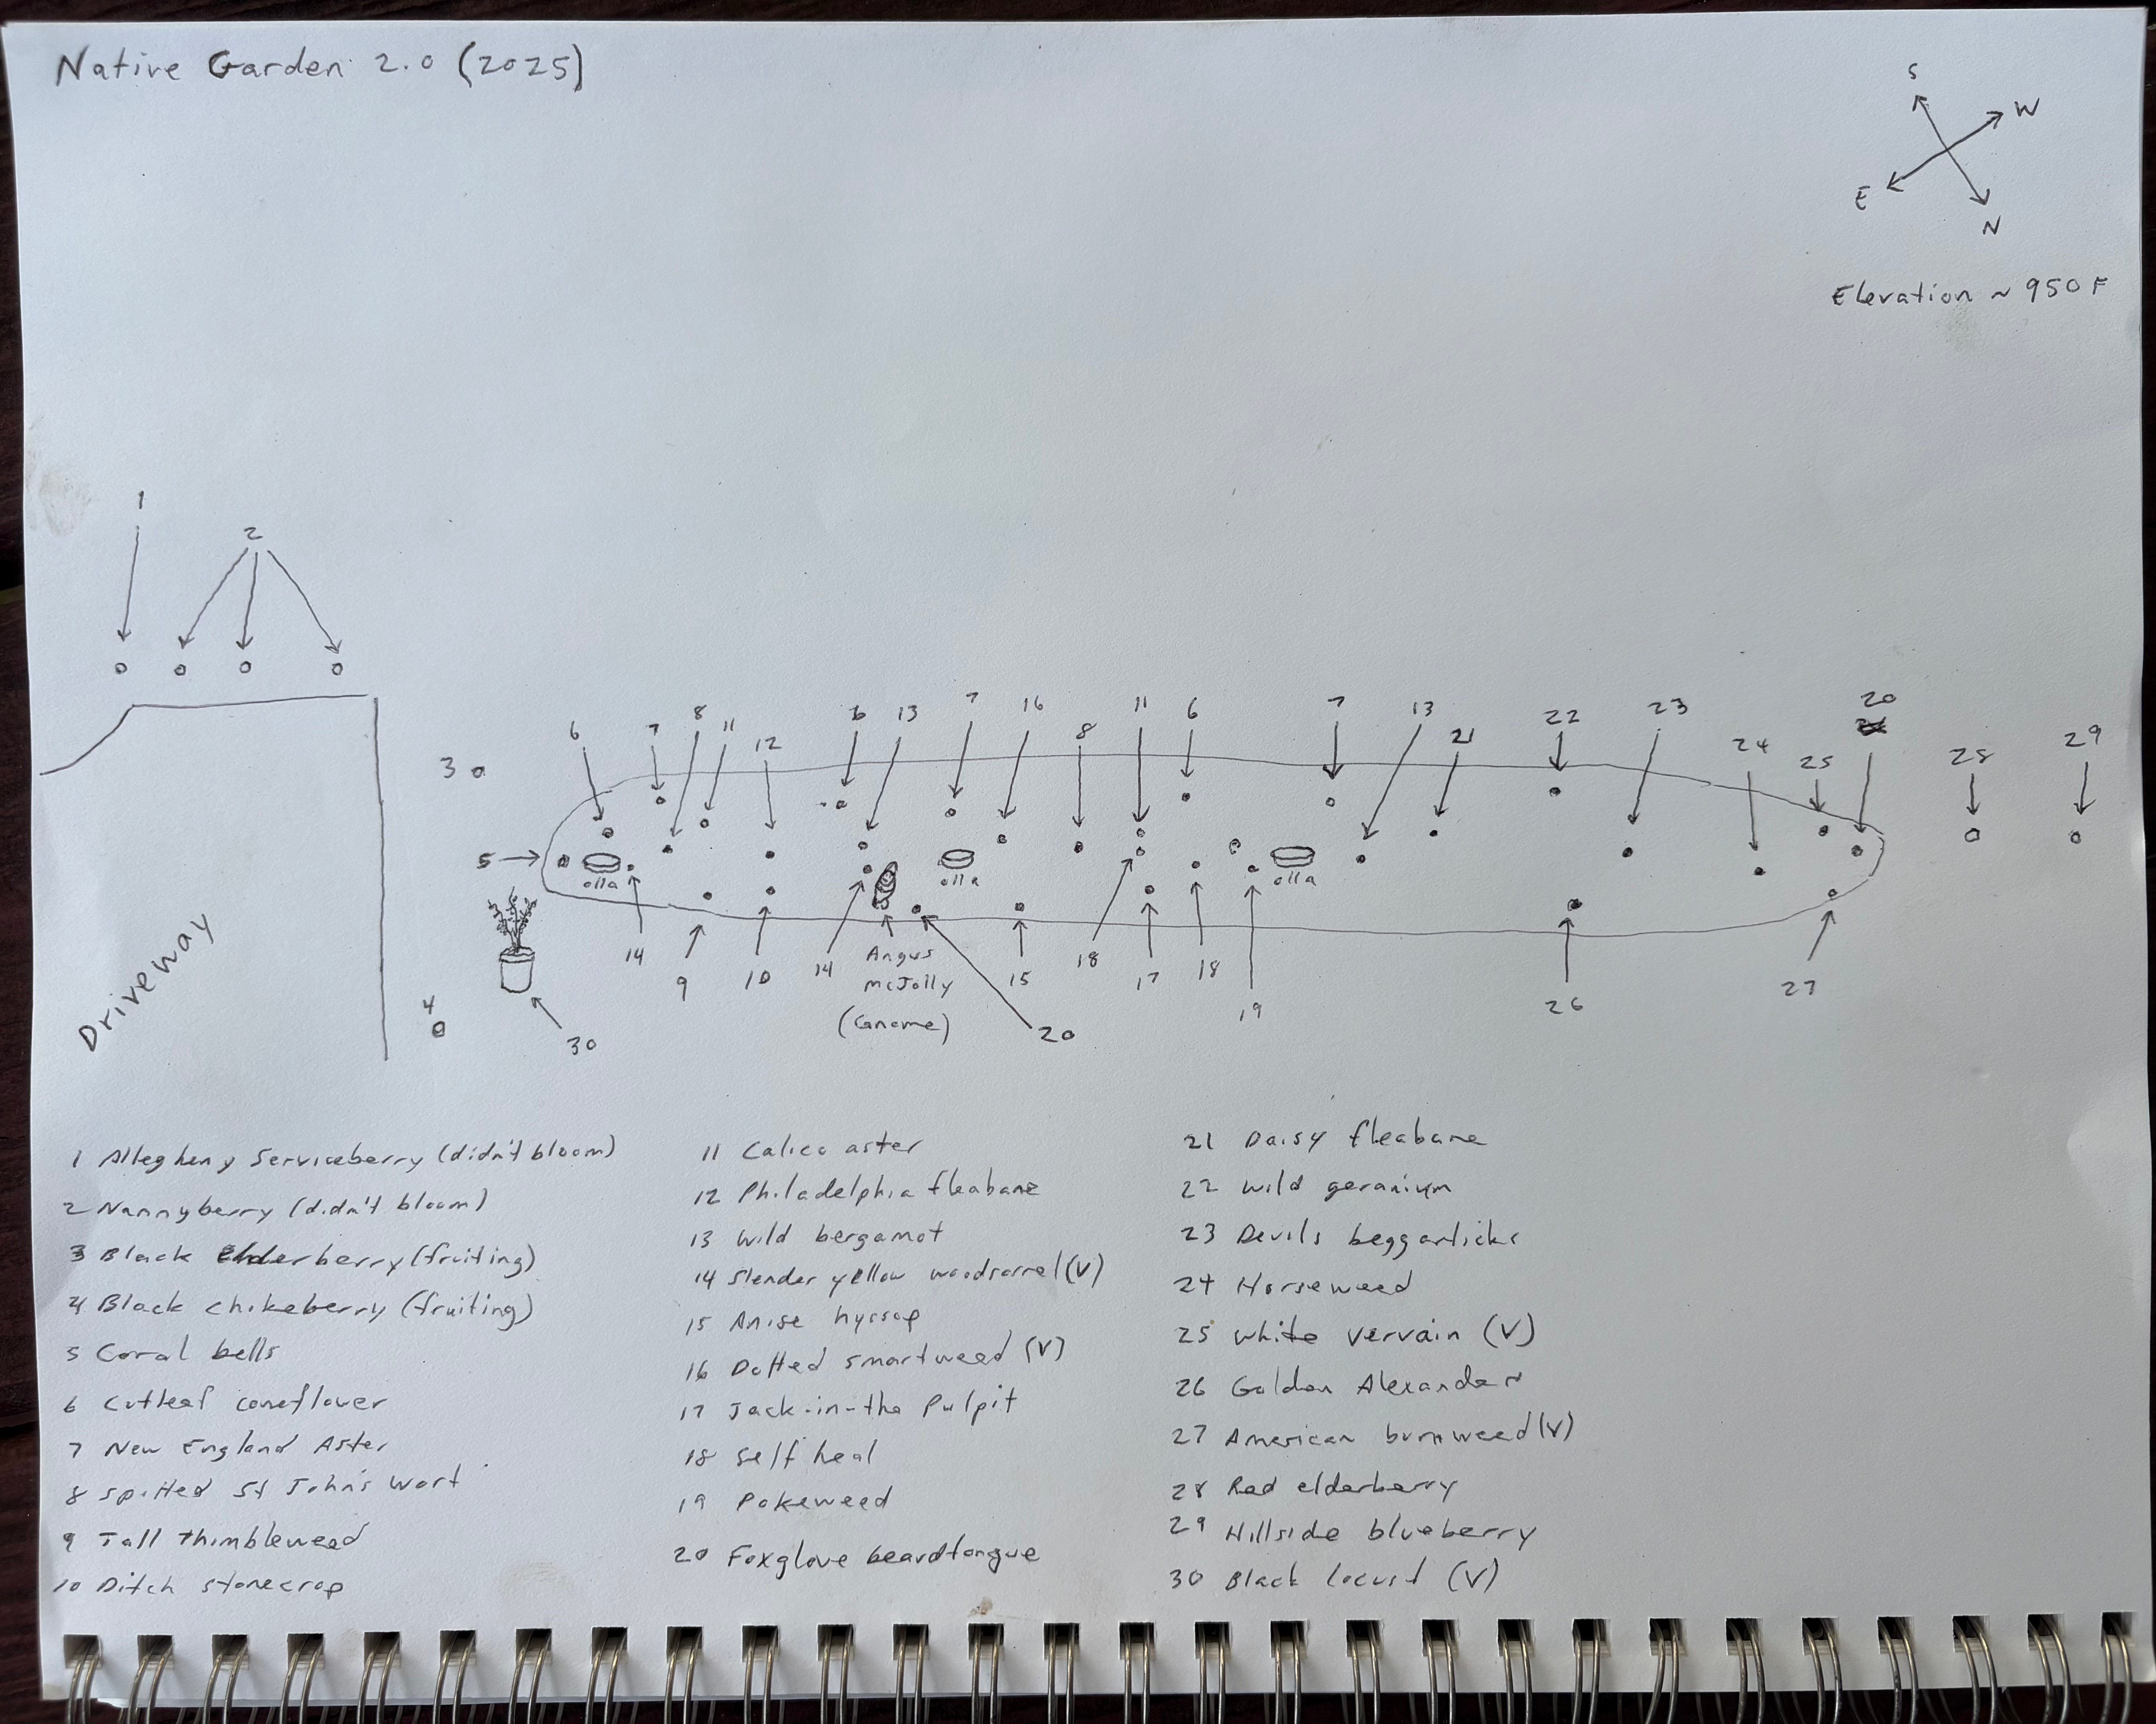 Native Garden 2.0 (2025)
S
W
E
N
Elevation ~ 950 F
1
2
3
4
5
6
7
8
11
12
6
13
7
16
8
11
6
7
13
21
22
23
24
25
20
28
29
olla
olla
olla
14
9
10
14
Angus
McJolly
(Gnome)
15
18
17
18
19
26
27
30
20
Driveway
1 Allegheny Serviceberry (didn't bloom)
2 Nannyberry (didn't bloom)
3 Black Elderberry (fruiting)
4 Black chikeberry (fruiting)
5 Coral bells
6 Cutleaf coneflower
7 New England Aster
8 Spotted St John's Wort
9 Tall Thimbleweed
10 Ditch stonecrop
11 Calico aster
12 Philadelphia fleabane
13 Wild bergamot
14 Slender yellow woodsorrel (V)
15 Anise hyssop
16 Dotted smartweed (V)
17 Jack-in-the Pulpit
18 Self heal
19 Pokeweed
20 Foxglove beardtongue
21 Daisy fleabane
22 Wild geranium
23 Devils beggarticks
24 Horseweed
25 White vervain (V)
26 Golden Alexanders
27 American burnweed (V)
28 Red elderberry
29 Hillside blueberry
30 Black locust (V)